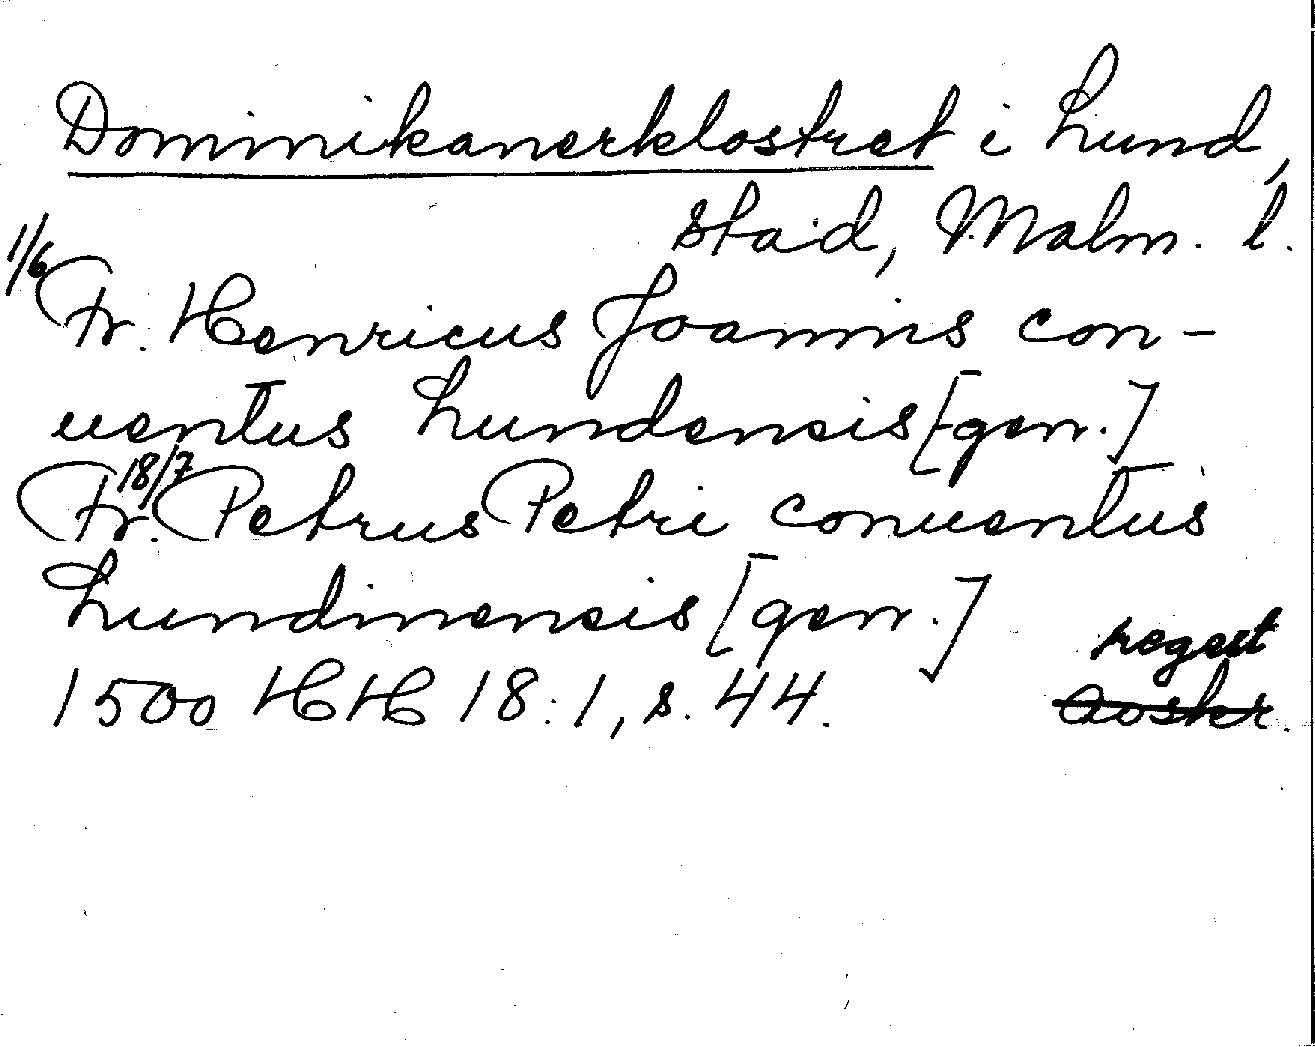 Dominikanerklostret i Lund,
stad, Malm. l.
1/6
Fr. Henricus Joannis con-
uentus Lundensis [gen.]
18/7
Fr. Petrus Petri conuentus
Lundinensis [gen.]
regest
1500 HH 18:1, s. 44. Avskr.